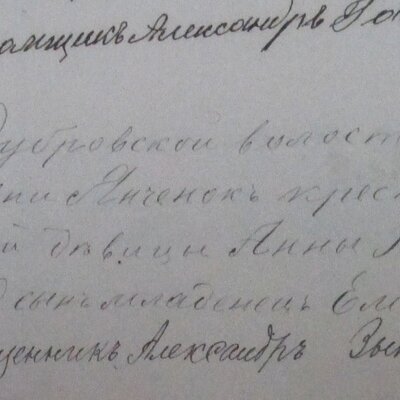 омщикъ Александръ Га
Дубровской волост
ни Янченокъ крес
ой дѣвицы Анны
сынъ младенецъ Еле
щенникъ Александръ Зы